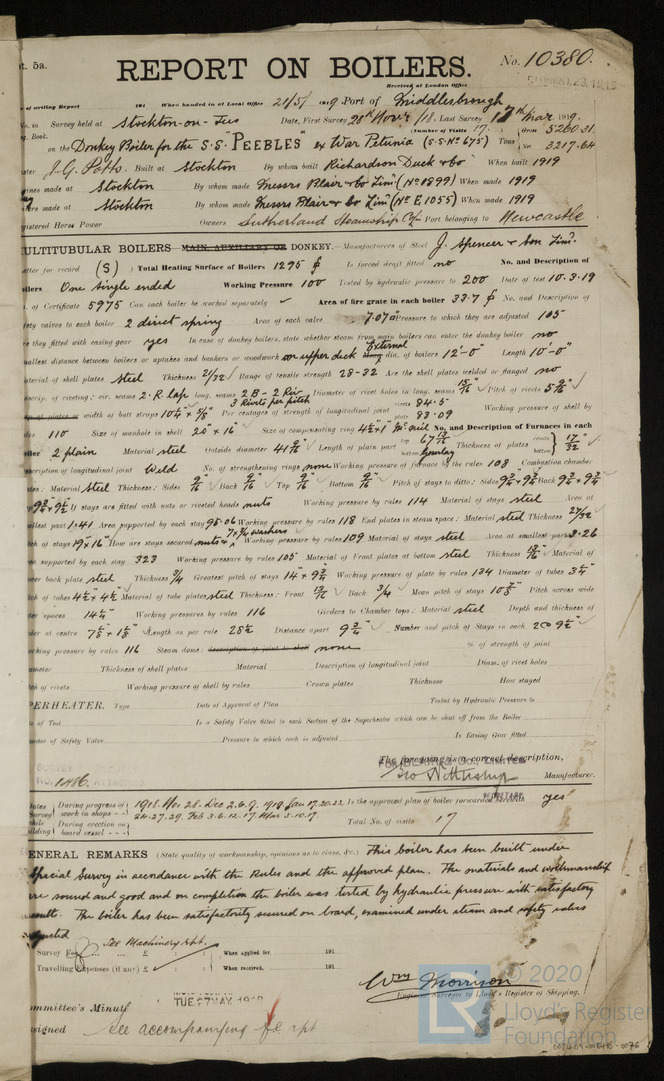 pt. 5a.
REPORT ON BOILERS.
No. 10380.
Received at London Office
of writing Report 191 When handed in at Local Office 21/5/ 1919 Port of Middlesbrough
No. in Survey held at Stockton-on-Tees Date, First Survey 28th Novr /18. Last Survey 17th Mar 1919.
g. Book. (Number of Visits 17.)
on the Donkey Boiler for the S.S. "PEEBLES" ex War Petunia (S.S. No 675) Tons Gross 5260.31 Net 3217.64
ster J. G. Potts. Built at Stockton By whom built Richardson Duck & Co When built 1919
gines made at Stockton By whom made Messrs Blair & Co Limd (No 1899) When made 1919
ilers made at Stockton By whom made Messrs Blair & Co Limd (No E 1055) When made 1919
gistered Horse Power Owners Sutherland Steamship Coy Port belonging to Newcastle
ULTITUBULAR BOILERS MAIN, AUXILIARY OR DONKEY.—Manufacturers of Steel J. Spencer & Son Limd.
etter for record (S) Total Heating Surface of Boilers 1295 ф Is forced draft fitted no No. and Description of
oilers One single ended Working Pressure 100 Tested by hydraulic pressure to 200 Date of test 10.3.19
. of Certificate 5975 Can each boiler be worked separately ✓ Area of fire grate in each boiler 33.7 ф No. and Description of
fety valves to each boiler 2 direct spring Area of each valve 7.07 Pressure to which they are adjusted 105
re they fitted with easing gear yes In case of donkey boilers, state whether steam from main boilers can enter the donkey boiler no
mallest distance between boilers or uptakes and bunkers or woodwork on upper deck External dia. of boilers 12'-0" Length 10'-0"
aterial of shell plates steel Thickness 21/32 Range of tensile strength 28-32 Are the shell plates welded or flanged no
escrip. of riveting: cir. seams 2.R. lap long. seams 2B-2Riv 3 Rivets per pitch Diameter of rivet holes in long. seams 15/16 Pitch of rivets
width of butt straps Per centages of strength of longitudinal joint rivets 84.5 plate 83.09 Working pressure of shell by
ules 110 Size of manhole in shell 20" x 16" Size of compensating ring No. and Description of Furnaces in each
oiler 2 plain Material steel Outside diameter Length of plain part top bottom Thickness of plates crown bottom 17/32
escription of longitudinal joint Weld No. of strengthening rings none Working pressure of furnace by the rules 108 Combustion chamber
ates: Material Steel Thickness: Sides 9/16 Back 9/16 Top 9/16 Bottom Pitch of stays to ditto: Sides Back
If stays are fitted with nuts or riveted heads nuts Working pressure by rules 114 Material of stays steel Area at
allest part 1.41 Area supported by each stay 95.06 Working pressure by rules 118 End plates in steam space: Material steel Thickness 27/32
tch of stays 19" x 16" How are stays secured nuts & washers Working pressure by rules 109 Material of stays steel Area at smallest part 3.26
ea supported by each stay 323 Working pressure by rules 105 Material of Front plates at bottom steel Thickness Material of
wer back plate steel Thickness 3/4 Greatest pitch of stays Working pressure of plate by rules 134 Diameter of tubes 3 1/4"
tch of tubes 4½ x 4½ Material of tube plates steel Thickness: Front Back 3/4 Mean pitch of stays Pitch across wide
ter spaces 14¼" Working pressures by rules 116 Girders to Chamber tops: Material steel Depth and thickness of
der at centre Length as per rule 25½ Distance apart Number and pitch of Stays in each
orking pressure by rules 116 Steam dome: description of joint to shell none % of strength of joint
ameter Thickness of shell plates Material Description of longitudinal joint Diam. of rivet holes
tch of rivets Working pressure of shell by rules Crown plates Thickness How stayed
PERHEATER. Type Date of Approval of Plan Tested by Hydraulic Pressure to
te of Test Is a Safety Valve fitted to each Section of the Superheater which can be shut off from the Boiler
meter of Safety Valve Pressure to which each is adjusted Is Easing Gear fitted
The foregoing is a correct description,
FOR BLAIR & Co., LIMITED
Manufacturer.
SECRETARY
No. 1486.
Dates of Survey while building
During progress of work in shops - - 1918. Nov 28. Dec 2.6.9. 1919 Jan 17.20.22. Is the approved plan of boiler forwarded herewith yes
24.27.29. Feb 3.6.12.17. Mar 3.10.17.
During erection on board vessel - - - Total No. of visits 17
ENERAL REMARKS (State quality of workmanship, opinions as to class, &c.) This boiler has been built under
special survey in accordance with the Rules and the approved plan. The materials and workmanship
are sound and good and on completion the boiler was tested by hydraulic pressure with satisfactory
result. The boiler has been satisfactorily secured on board, examined under steam and safety valves
adjusted
Survey Fee ... ... £ See Machinery rpt. When applied for, 191
Travelling Expenses (if any) £ When received, 191
Wm Morrison
Engineer Surveyor to Lloyd's Register of Shipping.
ommittee's Minute TUE. 27 MAY 1919
signed See accompanying f.e. rpt
© 2020
Lloyd's Register
Foundation
LR
008409-008418-0076